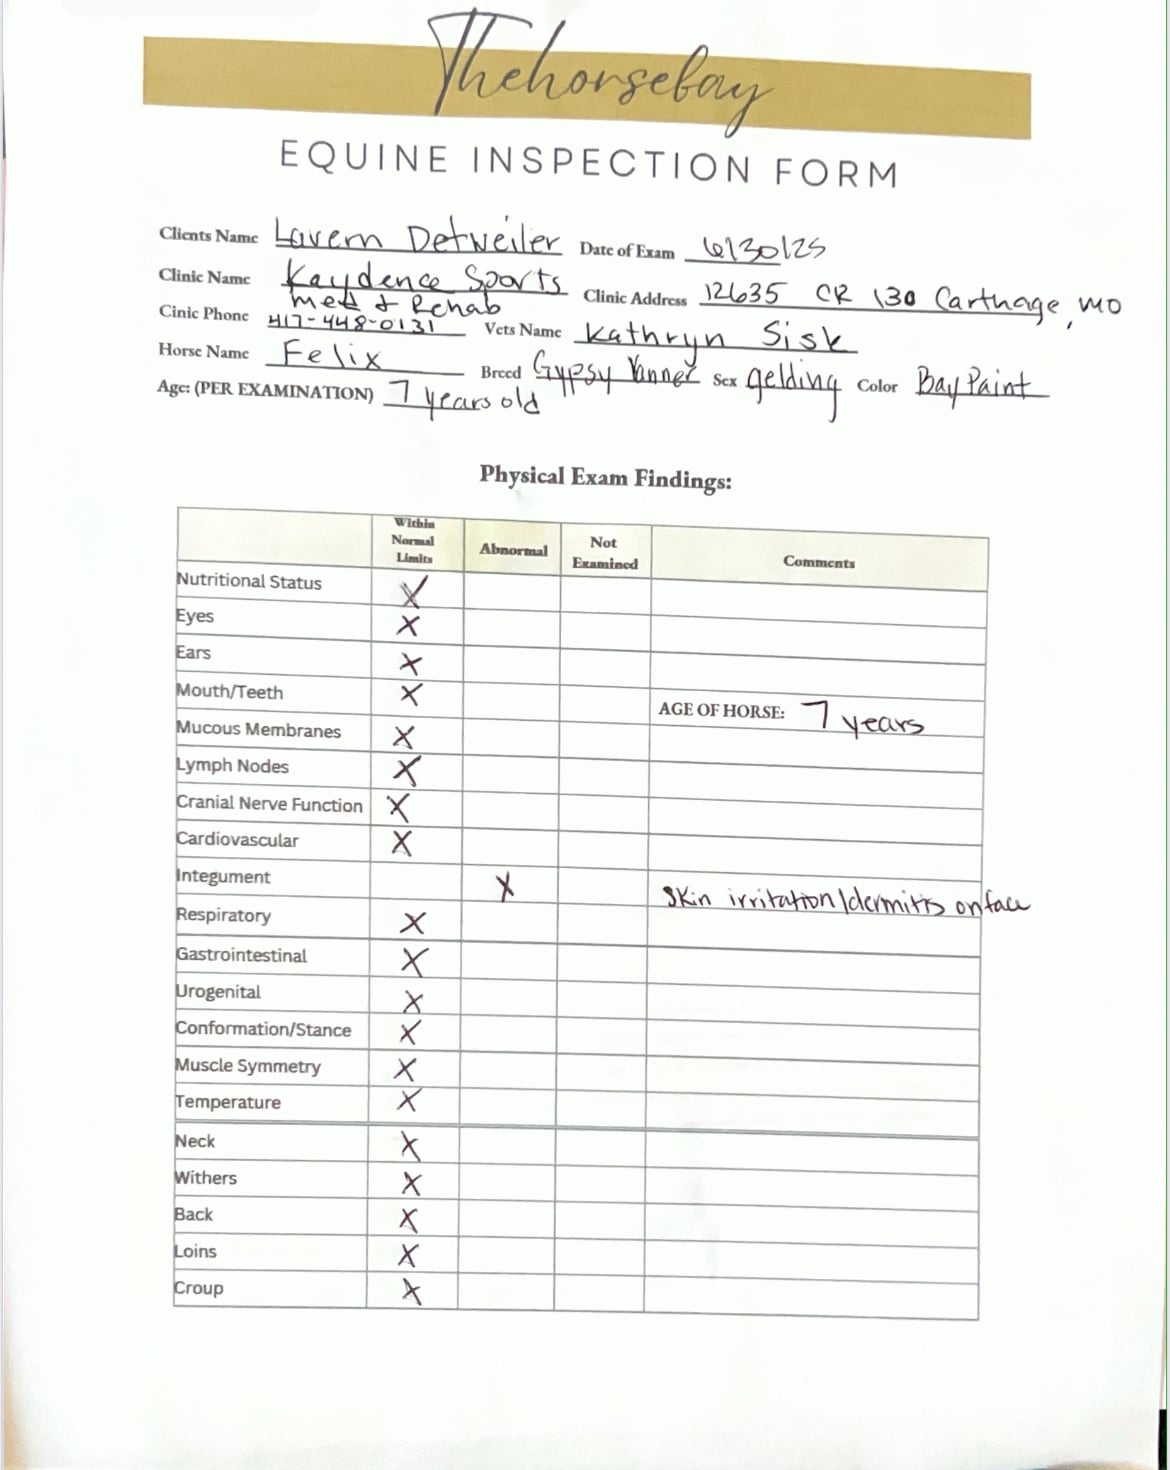 Thehorsebay
EQUINE INSPECTION FORM
Clients Name Lavern Detweiler Date of Exam 6/30/25
Clinic Name Kaydence Sports Med + Rehab Clinic Address 12635 CR 130 Carthage, MO
Cinic Phone 417-448-0131 Vets Name Kathryn Sisk
Horse Name Felix Breed Gypsy Vanner Sex gelding Color Bay Paint
Age: (PER EXAMINATION) 7 years old
Physical Exam Findings:
Within Normal Limits Abnormal Not Examined Comments
Nutritional Status X
Eyes X
Ears X
Mouth/Teeth X AGE OF HORSE: 7 years
Mucous Membranes X
Lymph Nodes X
Cranial Nerve Function X
Cardiovascular X
Integument X Skin irritation/dermitis on face
Respiratory X
Gastrointestinal X
Urogenital X
Conformation/Stance X
Muscle Symmetry X
Temperature X
Neck X
Withers X
Back X
Loins X
Croup X